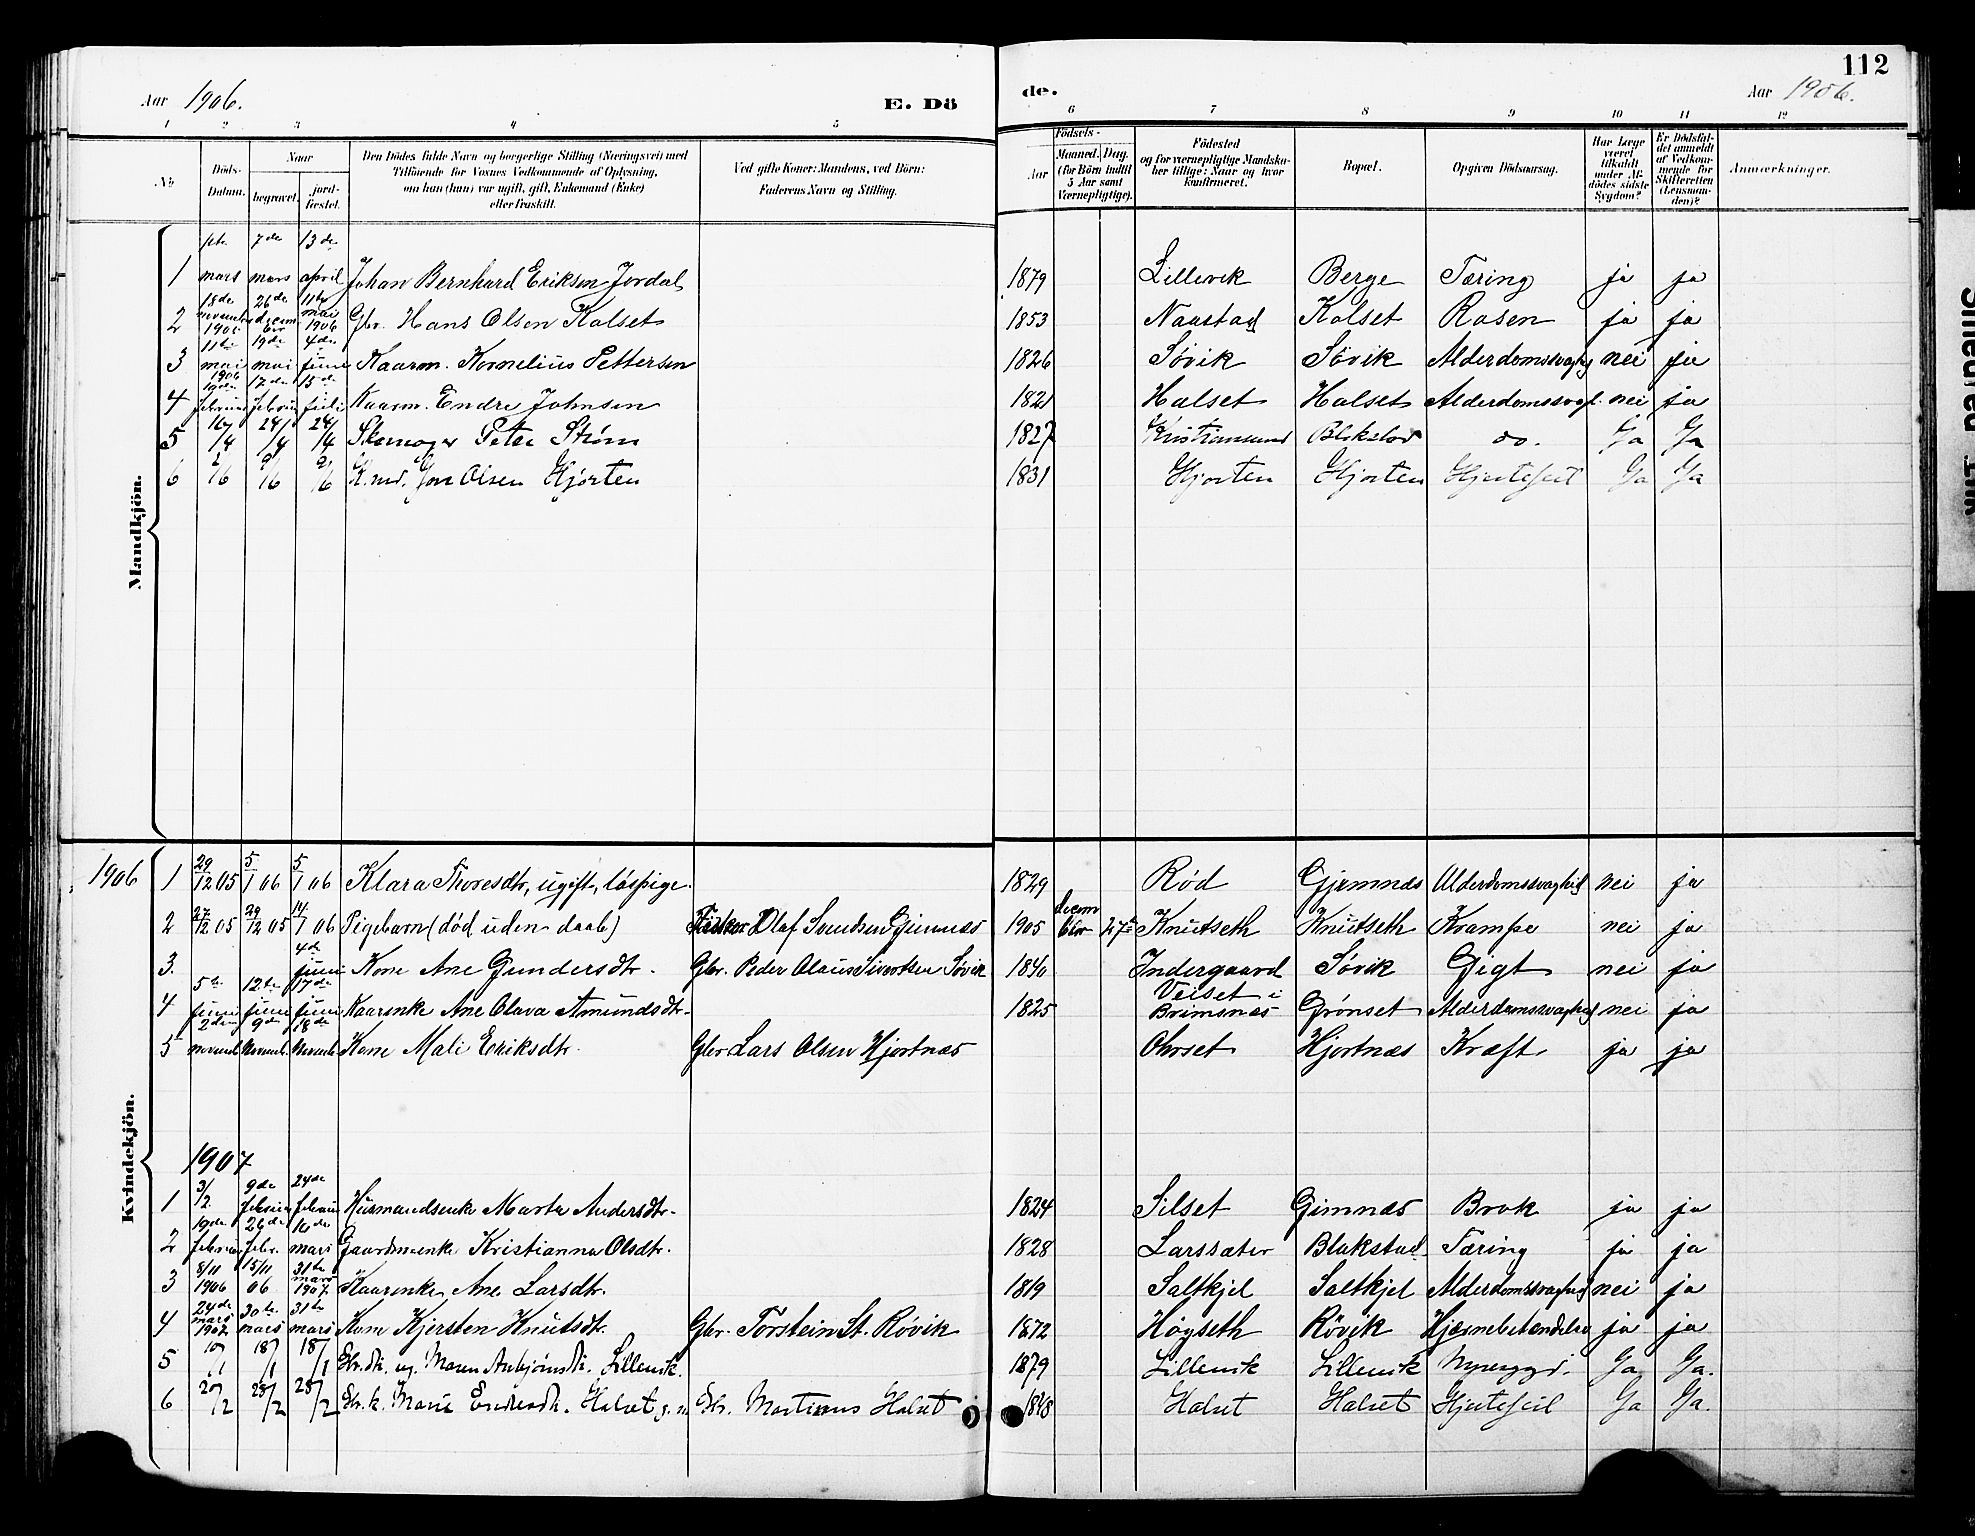 112
Aar 1906. E. Dö de. Aar 1906.
1 2 3 4 5 6 7 8 9 10 11 12
No. Döds-Datum. Naar begravet. jord-fæstet. Den Dödes fulde Navn og borgerlige Stilling (Næringsvei) med Tilföiende for Voxnes Vedkommende af Oplysning, om han (hun) var ugift, gift, Enkemand (Enke) eller fraskilt. Ved gifte Koner: Mandens, ved Börn: Faderens Navn og Stilling. Födsels- Aar Maaned. Dag. (for Börn indtil 5 Aar samt Værnepligtige). Födested og for værnepligtige Mandskaber tillige: Naar og hvor konfirmeret. Bopæl. Opgiven Dödsaarsag. Har Læge været tilkaldt under Afdödes sidste Sygdom? Er Dödsfaldet anmeldt af Vedkommende for Skifteretten (Lensmanden)? Anmærkninger.
Mandkjön.
1 mars 7de mars 13de april Johan Bernhard Eriksen Jordal 1879 Lillevik Berge Tæring ja ja
2 18de november 26de decembr 11te mai 1906 Gbr. Hans Olsen Kalset 1853 Naastad Kalset Rosen ja ja
3 11te mai 1906 19de mai 4de juni Kaarm. Kornelius Pettersen 1826 Søvik Søvik Alderdomssvaghed nei ja
4 februar 17de februar 15de juli Kaarm. Endre Johnsen 1821 Halset Halset Alderdomssvagh. nei ja
5 16/4 24/4 24/4 Skomager Peter Strøm 1827 Kristiansund Blakstad do. Ja Ja
6 2/6 9/6 9/6 K.md. Jon Olsen Hjorten 1831 Hjorten Hjorten Hjertefeil Ja Ja
Kvindekjön.
1906 1 29/12 05 5/1 06 5/1 06 Klara Thoresdtr, ugift, løspige. 1829 Rød Gjemnæs Alderdomssvaghed nei ja
2 27/12 05 29/12 05 14/1 06 Pigebarn (død uden daab) Fisker Olaf Svendsen Gimnæs 1905 decembr 27de Knutseth Knutseth Krampe nei ja
3. 4de juni Kone Ane Gundersdtr. Gbr. Peder Olaus Sivertsen Søvik 1840 Indergaard Søvik Gigt nei ja
4 5te juni 12te juni 17de juni Kaarenke Ane Olava Amundsdtr. 1825 Veiset i Brimsnæs Grønset Alderdomssvaghed nei ja
5 2den novemb. 9de Novemb. 18de Novemb. Kone Mali Eriksdtr. Gbr Lars Olsen Hjortnæs Ohrset Hjortnæs Kræft ja ja
1907
1 3/2 9de februar 24de februar Husmandsenke Marta Andersdtr. 1824 Silset Gimnæs Brok ja ja
2 19de februar 26de febr. 10de mars Gaardmenke Kristianna Olsdtr. 1828 Larssæter Blakstad Tæring ja ja
3 8/11 1906 15/11 06 31te mars 1907 Kaarenke Ane Larsdtr. 1819 Saltkjel Saltkjel Alderdomssvaghed nei ja
4 24de mars 1907 30te mars 31te mars Kone Kjersten Knutsdtr. Gbr. Torstein St. Røvik 1872 Høgseth Røvik Hjernebetændelse ja ja
5 10/1 18/1 18/1 Gbr.dtr. ug. Maren Anbjørnsdtr. Lillevik. 1879 Lillevik Lillevik Ja Ja.
6 20/2 28/2 28/2 Gbr.k. Marie Endresdtr. Halset g. m. Gbr. Martinus Halset 1848 Halset Halset Hjertefeil Ja Ja.